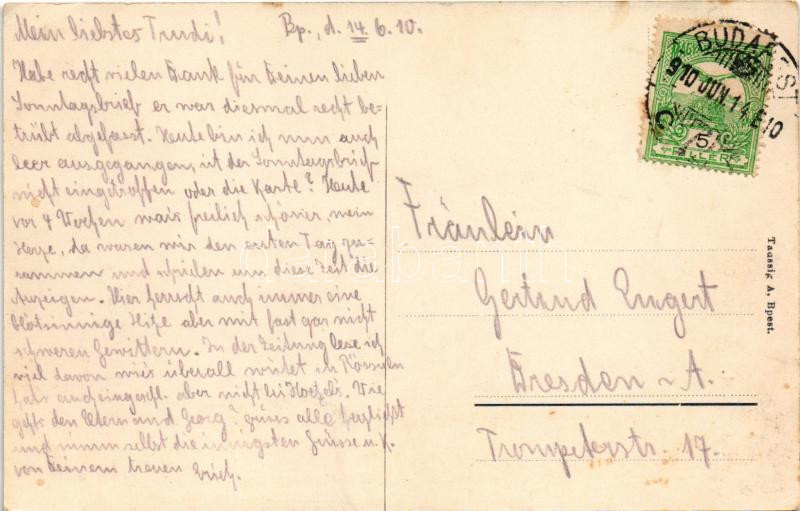 Mein liebstes Trudi! Bp., d. 14.6.10.
Habe recht vielen Dank für Deinen lieben
Sonntagsbrief er war diesmal recht be-
trübt abgefasst. Heute bin ich nun auch
leer ausgegangen, ist der Sonntagsbrief
nicht eingetroffen oder die Karte? Heute
vor 4 Wochen wars freilich schöner, mein
Herze, da waren wir den ersten Tag zu-
sammen und schrieben um diese Zeit die
Anzeigen. Hier herrscht auch immer eine
blötsinnige Hitze aber mit fast gar nicht
schweren Gewittern. In der Zeitung lese ich
viel davon wies überall wütet in
auch aber nicht bei Wie
gehts den Eltern und Georg? grüss alle herzlichst
und nimm selbst die innigsten Grüsse u. K.
von Deinem treuen
Erich.
BUDAPEST
910 JUN. 14
5
FILLER
Fräulein
Gertrud Engert
Dresden - A.
Trompeterstr. 17.
Taussig A. Bpest.
darabanth.com